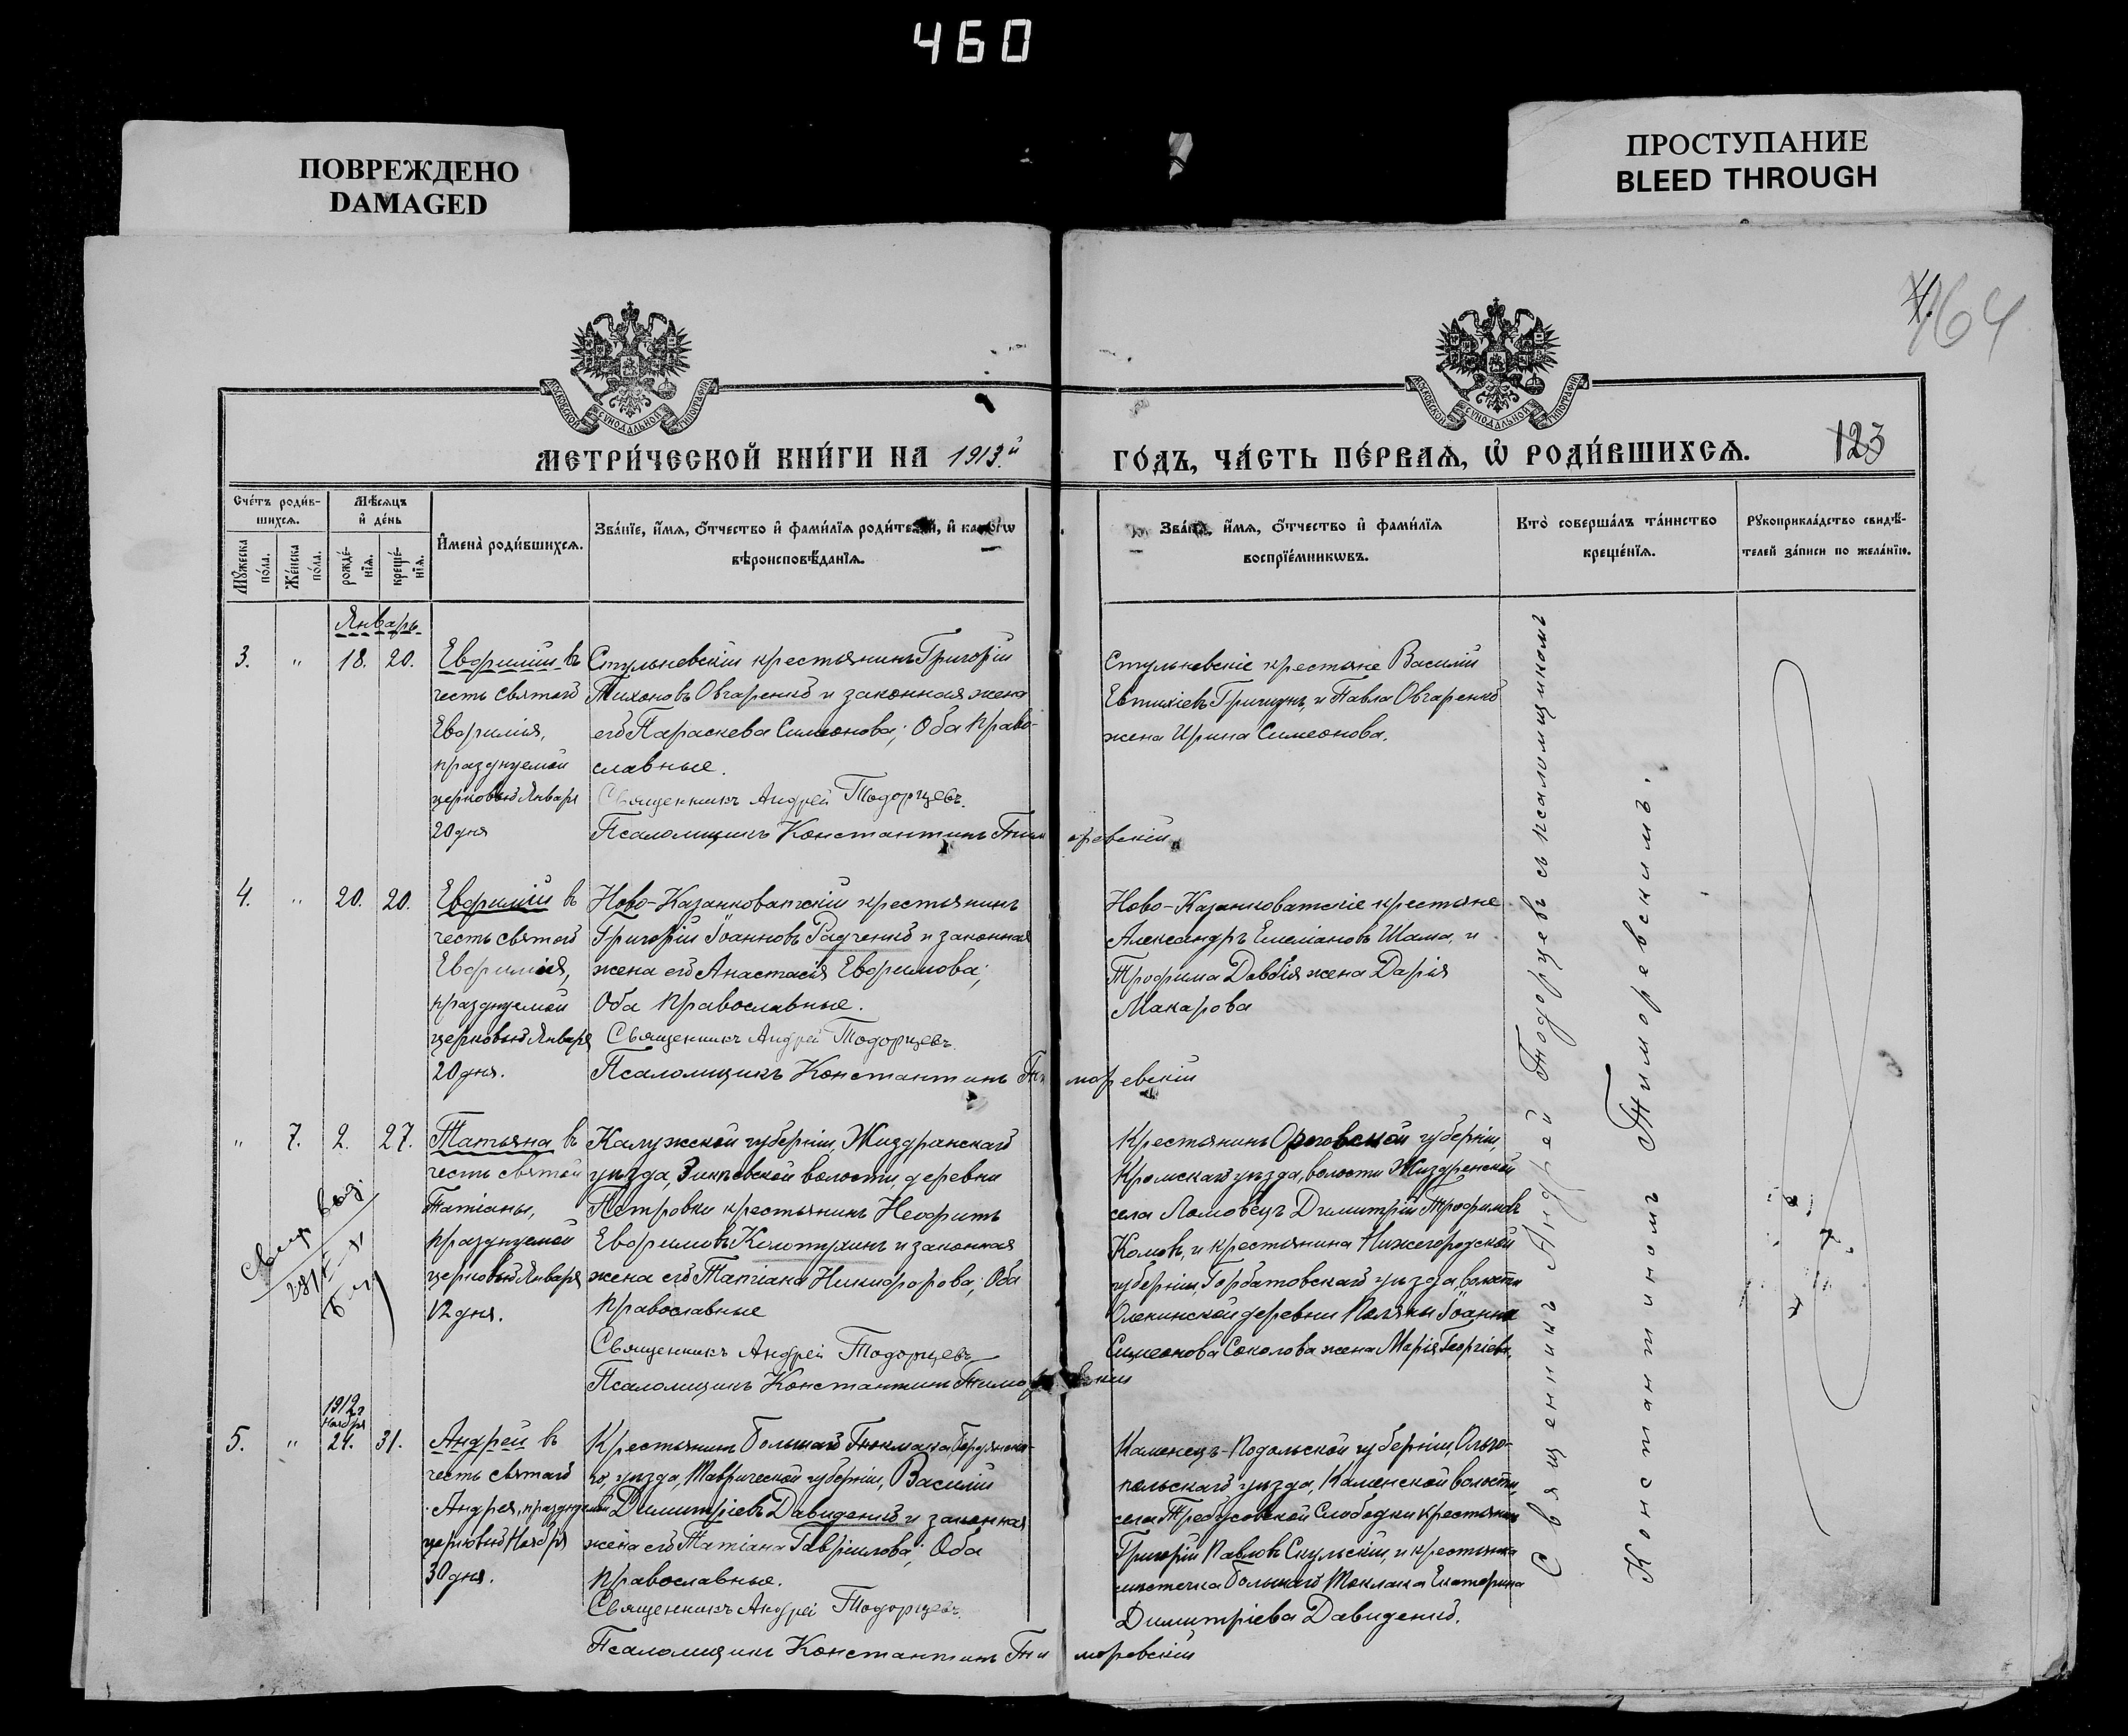 460
ПОВРЕЖДЕНО
DAMAGED
ПРОСТУПАНИЕ
BLEED THROUGH
164
МЕТРИ́ЧЕСКОЙ КНИ́ГИ НА 1913.й
ГО́ДЪ, ЧА́СТЬ ПЕ́РВАѦ, Ѡ҆ РОДИ́ВШИХСѦ.
123
Сче́тъ роди́в-
шихсѧ.
Мѣ́сяцъ
и҆ де́нь
Мꙋ́жеска
по́ла.
Же́нска
по́ла.
рожде́-
нїѧ.
креще́-
нїѧ.
И҆мена̀ роди́вшихсѧ.
Зва́нїе, и҆́мѧ, ѻ҆́тчество и҆ фами́лїѧ роди́телей, и҆ како́гѡ
вѣроисповѣ́данїѧ.
Зва́нїе, и҆́мѧ, ѻ҆́тчество и҆ фами́лїѧ
воспрїе́мникѡвъ.
Кто̀ соверша́лъ та́инство
креще́нїѧ.
Рꙋкоприкла́дство свидѣ́-
телей за́писи по жела́нїю.
Январь
3. " 18. 20.
Евфимій въ
честь святаго
Евфимія,
празднуемой
церковью Января
20 дня
Стульневскій крестьянинъ Григорій
Тихоновъ Овчаренко и законная жена
его Параскева Симеонова; Оба Право-
славные.
Священникъ Андрей Тодорцевъ.
Псаломщикъ Константинъ Тиморевскій
Стульневскіе крестьяне Василій
Евтихіевъ Грицунъ, и Павла Овчаренко
жена Ирина Симеонова.
4. " 20. 20.
Евфимій въ
честь святаго
Евфимія,
празднуемой
церковью Января
20 дня.
Ново-Казанковатскій крестьянинъ
Григорій Іоанновъ Радченко и законная
жена его Анастасія Евфимова;
Оба Православные.
Священникъ Андрей Тодорцевъ
Псаломщикъ Константинъ Тиморевскій
Ново-Казанковатскіе крестьяне
Александръ Емеліановъ Шама, и
Трофима жена Дарія
Макарова
" 7. 2. 27.
Татьяна въ
честь святой
Татіаны,
празднуемой
церковью Января
12 дня.
Калужской губерніи, Жиздранскаго
уѣзда, волости, деревни
Петровки крестьянинъ Неофитъ
Евфимовъ Колотухинъ и законная
жена его Татіана Никифорова; Оба
Православные
Священникъ Андрей Тодорцевъ
Псаломщикъ Константинъ
Крестьянинъ губерніи,
Кромскаго уѣзда, волости Жиздренской
села Ломовецъ Димитрій Трофимовъ
Комовъ, и крестьянина Нижегородской
губерніи, Горбатовскаго уѣзда, волости
деревни Поляны Іоанна
Симеонова Соколова жена Марія Георгіева.
свид. выд.
1912 г
Ноября
5. " 24. 31.
Андрей въ
честь святаго
Андрея, празднуемой
церковью Ноября
30 дня.
Крестьянинъ Большаго Токмака, Бердянска-
го, уѣзда, Таврической губерніи, Василій
Димитріевъ Давиденко и законная
жена его Татіана Гавріилова; Оба
Православные.
Священникъ Андрей Тодорцевъ.
Псаломщикъ Константинъ Тиморевскій
Каменецъ-Подольской губерніи, Ольго-
польскаго уѣзда, Каменской волости,
села Требусовской Слободки крестьянинъ
Григорій Павловъ Скульскій, и крестьянка
мѣстечка Большаго Токмака Екатерина
Димитріева Давиденко.
Священникъ Андрей Тодорцевъ съ псаломщикомъ
Константиномъ Тиморевскимъ.